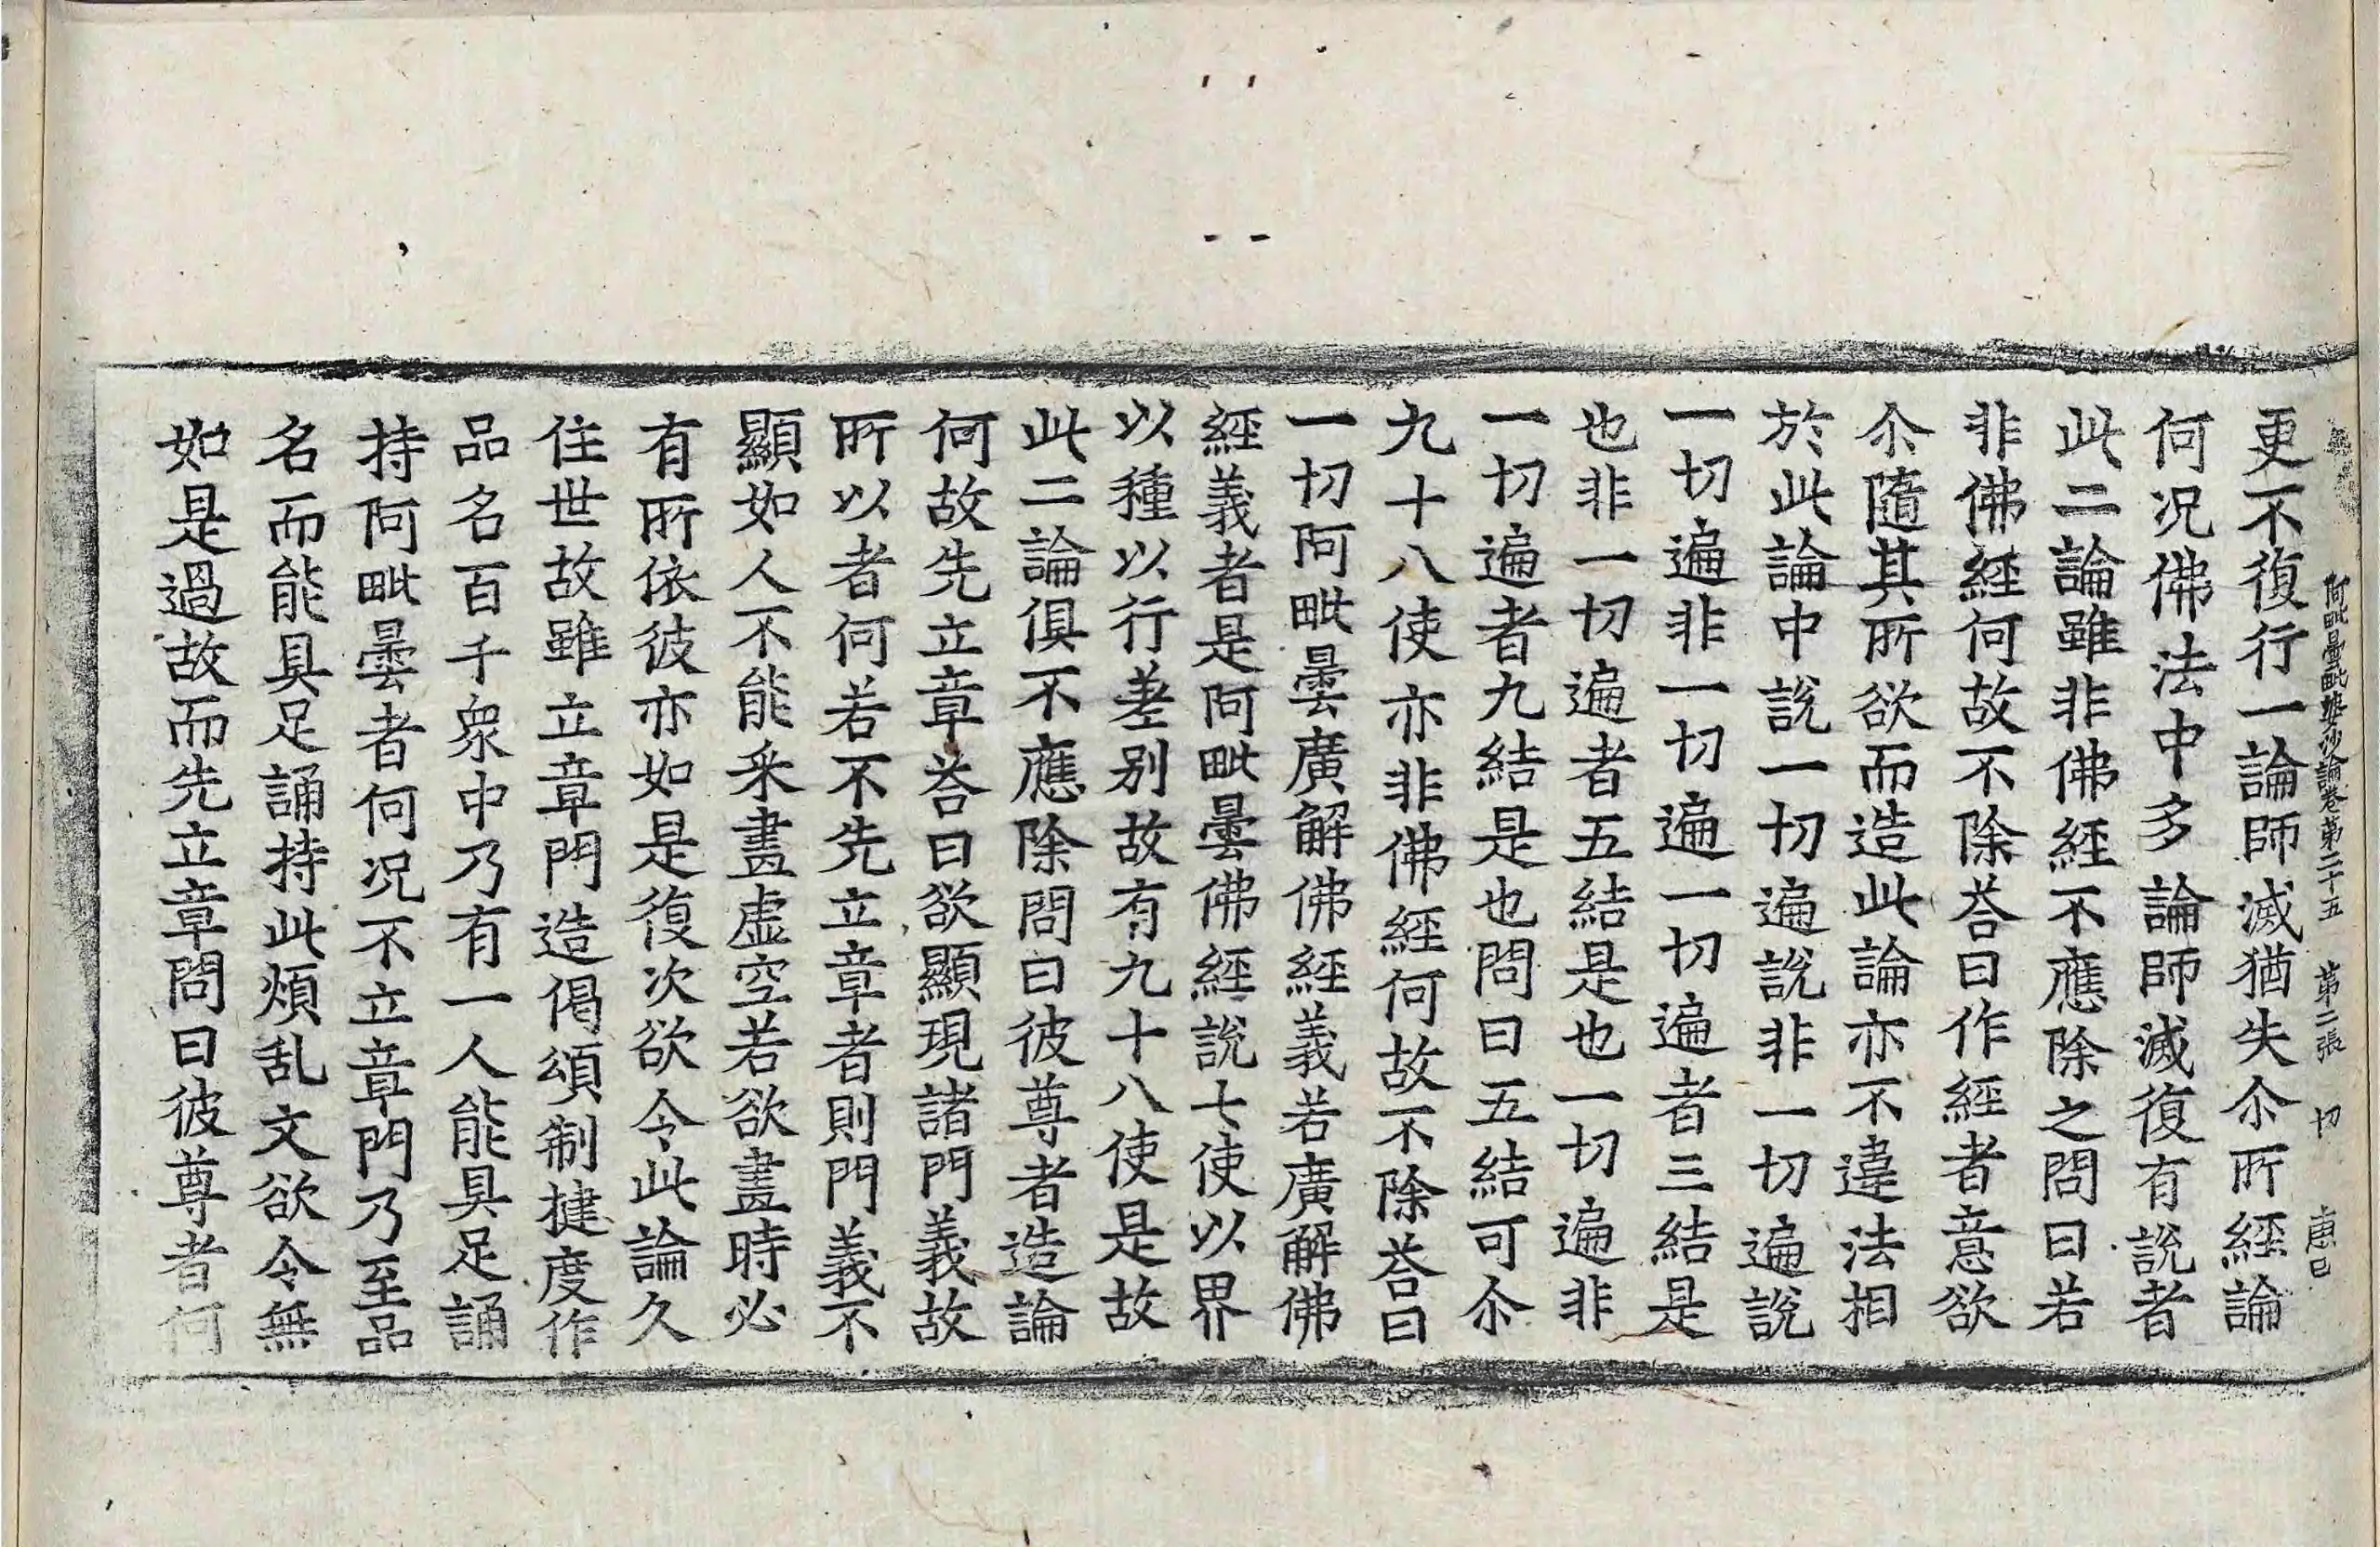 阿毗曇毗婆沙論卷第二十五 第二張 切
更不復行一論師滅猶失尒所經論
何况佛法中多論師滅復有說者
此二論雖非佛經不應除之問曰若
非佛經何故不除荅曰作經者意欲
尒隨其所欲而造此論亦不違法相
於此論中說一切遍說非一切遍說
一切遍非一切遍一切遍者三結是
也非一切遍者五結是也一切遍非
一切遍者九結是也問曰五結可尒
九十八使亦非佛經何故不除荅曰
一切阿毗曇廣解佛經義若廣解佛
經義者是阿毗曇佛經說七使以界
以種以行差別故有九十八使是故
此二論俱不應除問曰彼尊者造論
何故先立章荅曰欲顯現諸門義故
所以者何若不先立章者則門義不
顯如人不能釆畫虛空若欲畫時必
有所依彼亦如是復次欲令此論久
住世故雖立章門造偈頌制揵度作
品名百千衆中乃有一人能具足誦
持阿毗曇者何况不立章門乃至品
名而能具足誦持此煩乱文欲令無
如是過故而先立章問曰彼尊者何